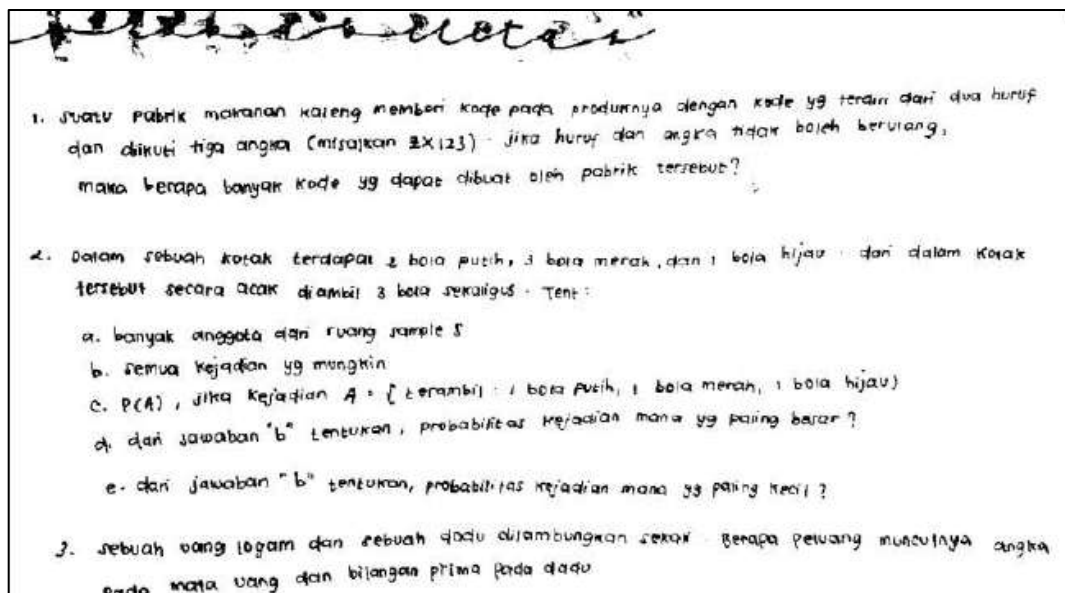 1. Suatu pabrik makanan kaleng memberi kode pada produknya dengan kode yg terdiri dari dua huruf
dan diikuti tiga angka (misalkan ZX123). Jika huruf dan angka tidak boleh berulang,
maka berapa banyak kode yg dapat dibuat oleh pabrik tersebut?
2. Dalam sebuah kotak terdapat 2 bola putih, 3 bola merah, dan 1 bola hijau. dari dalam kotak
tersebut secara acak diambil 3 bola sekaligus. Tent:
a. banyak anggota dari ruang sample S
b. semua kejadian yg mungkin
c. P(A), jika kejadian A = {terambil : 1 bola putih, 1 bola merah, 1 bola hijau}
d. dari jawaban "b" tentukan, probabilitas kejadian mana yg paling besar?
e. dari jawaban "b" tentukan, probabilitas kejadian mana yg paling kecil?
3. sebuah uang logam dan sebuah dadu dilambungkan sekali. Berapa peluang munculnya angka
pada mata uang dan bilangan prima pada dadu